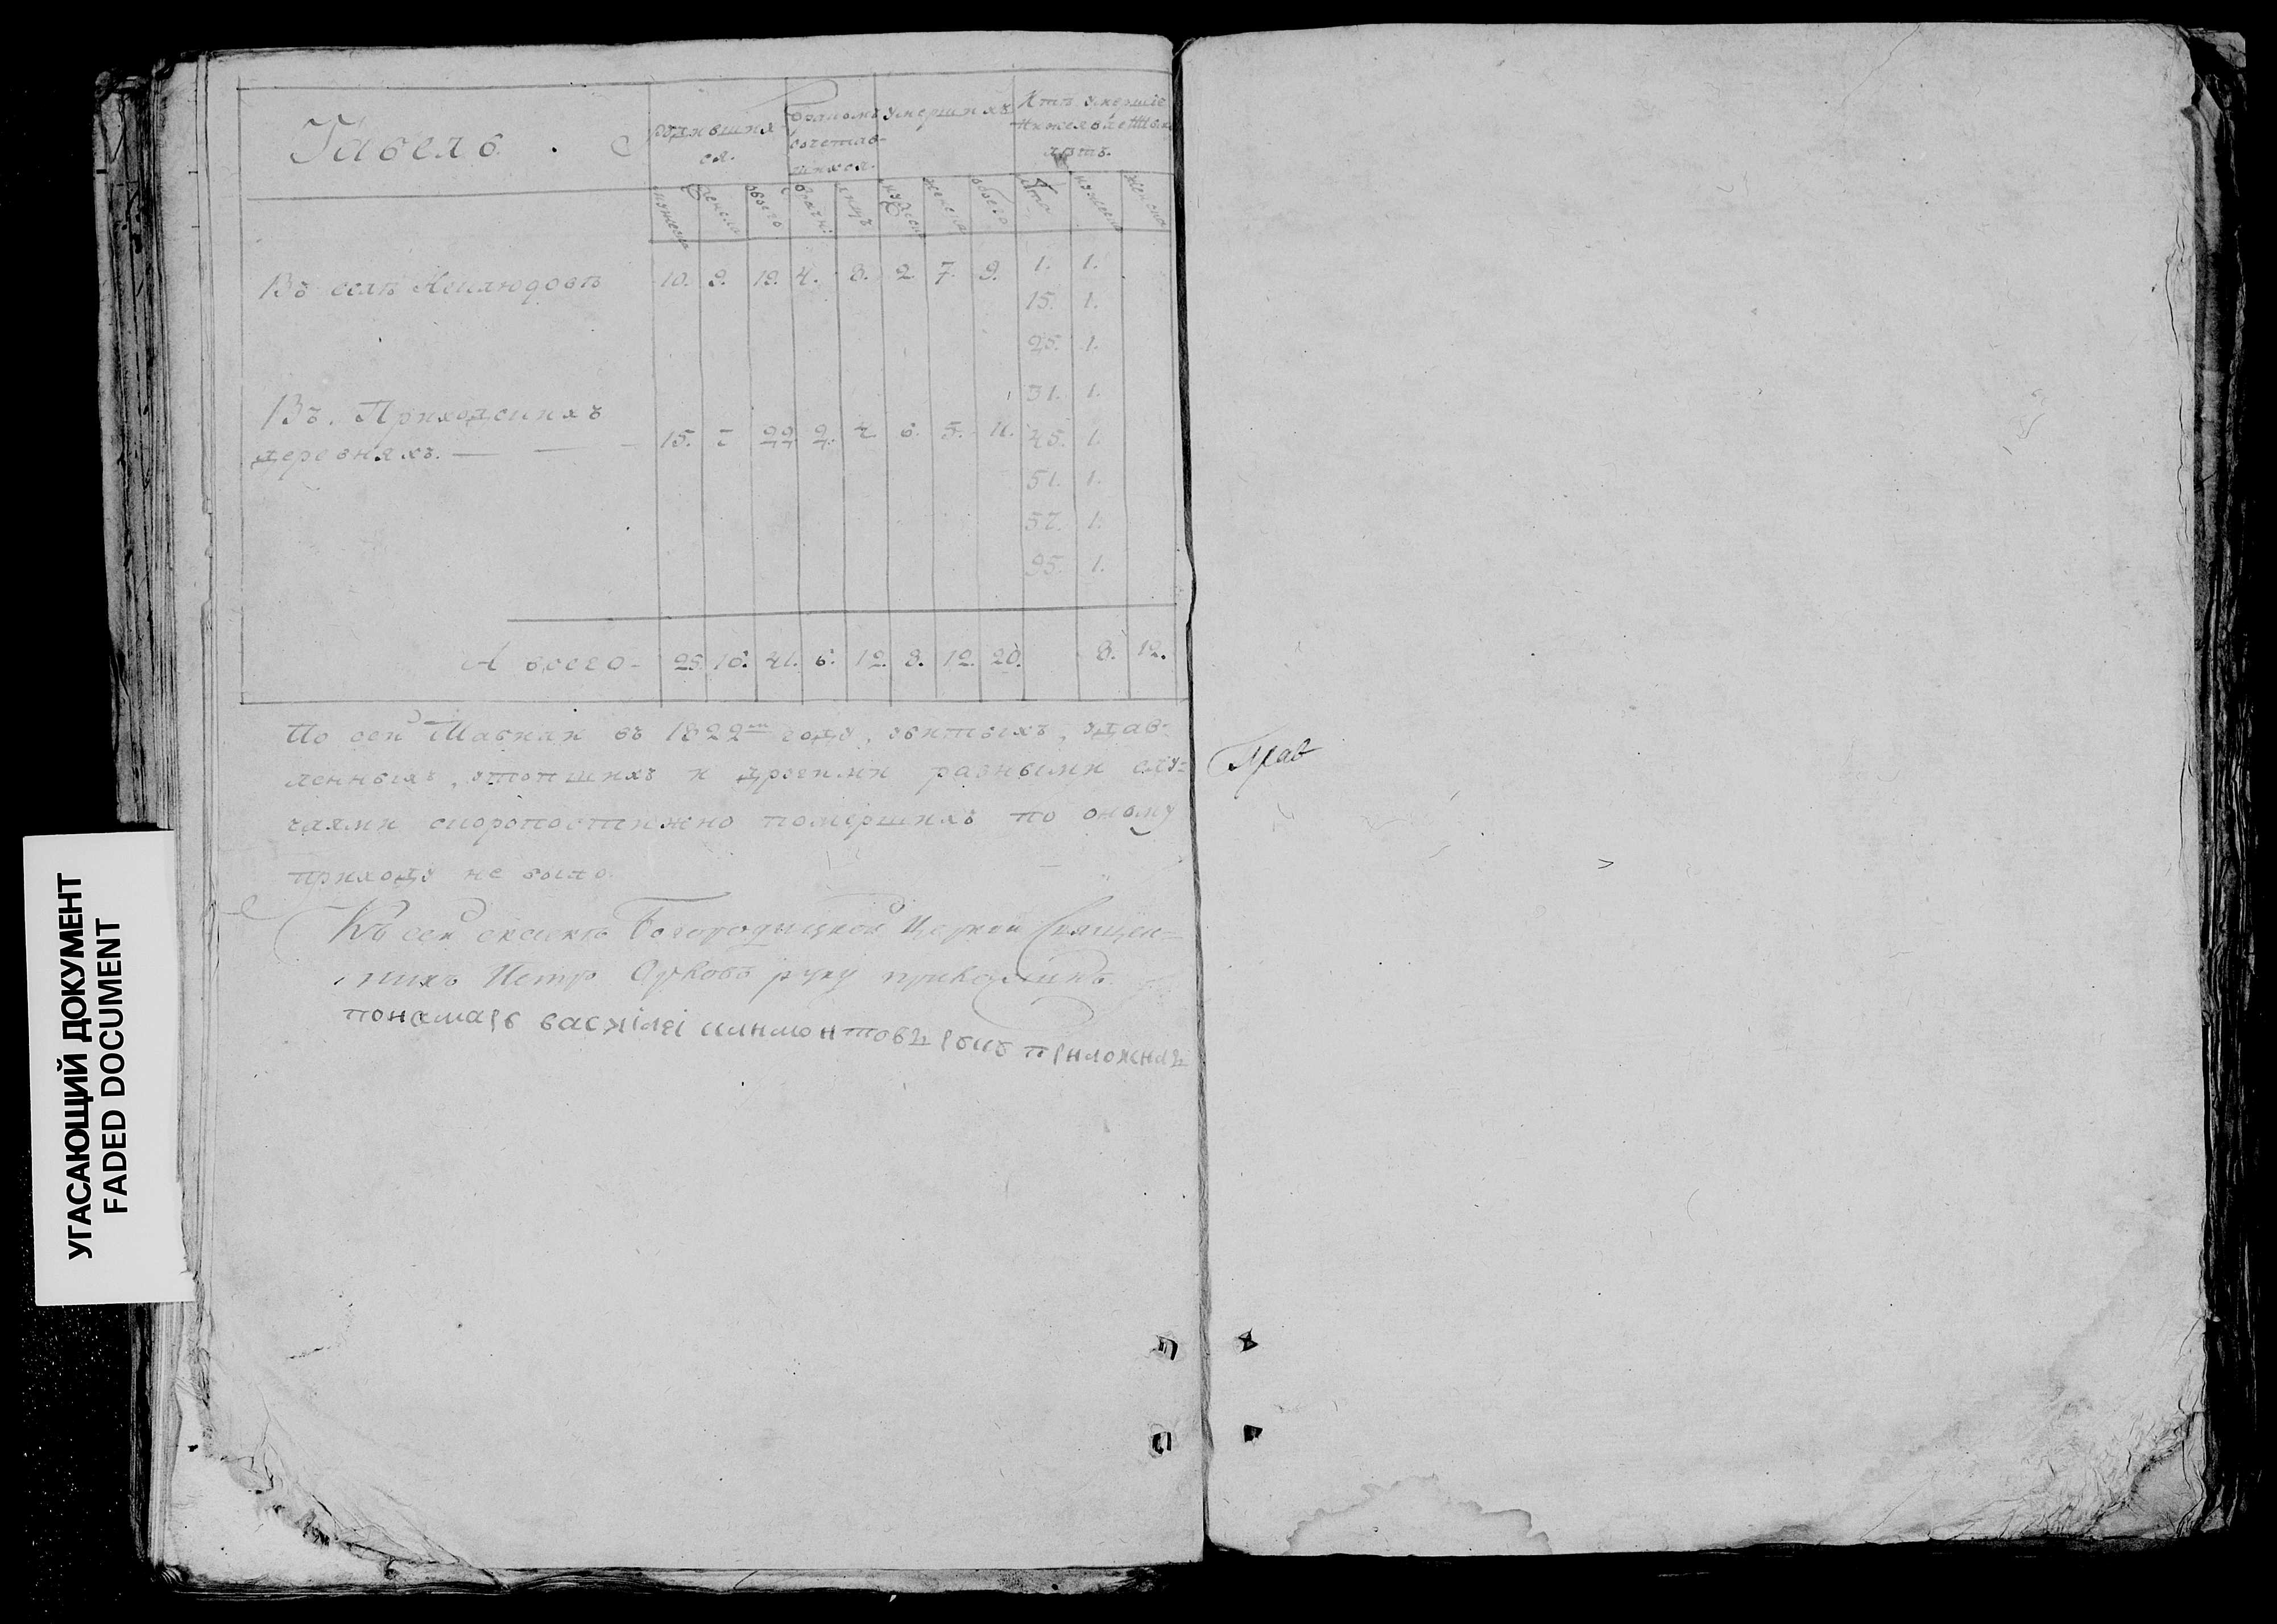 Табель
родившихся.
бракомъ сочетавшихся.
умершихъ
лѣтъ.
мужеска женска обоего брачн: лицъ мужеска женска обоего лѣта мужеска женска
Въ селѣ 10. 9. 19. 4. 8. 2. 7. 9. 1. 1.
15. 1.
25. 1.
31. 1.
Въ Приходскихъ
деревняхъ. — — — 15. 7 22 2. 4 6. 5. 11. 45. 1.
51. 1.
57. 1.
95. 1.
А всего - 25. 16. 41. 6. 12. 8. 12. 20. 8. 12.
По сей въ 1822м году, убитыхъ, удав-
ленныхъ, утопшихъ и другими разными слу=
чаями скоропостижно помершихъ по оному
приходу не было.
Къ сей Богородицкой Церкви Священ=
никъ Петръ руку приложилъ
понамарь василеі приложилъ
УГАСАЮЩИЙ ДОКУМЕНТ
FADED DOCUMENT